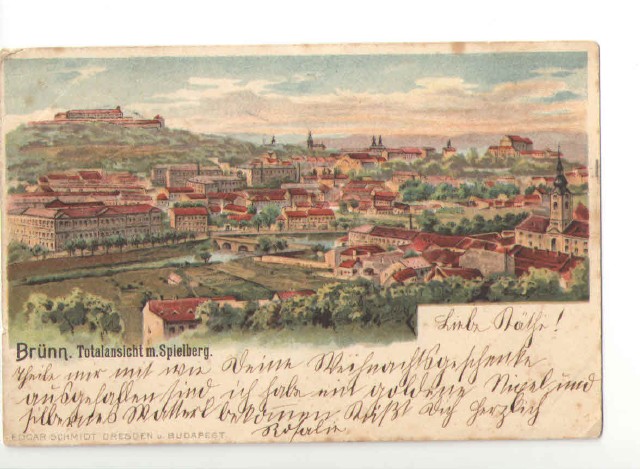 Liebe Käthe!
Brünn. Totalansicht m. Spielberg.
Theile mir mit wie Deine Weihnachtsgeschenke
ausgefallen sind ich habe ein goldene und
silbernes bekommen Küßt Dich herzlich
Rosalie
EDGAR SCHMIDT DRESDEN u. BUDAPEST